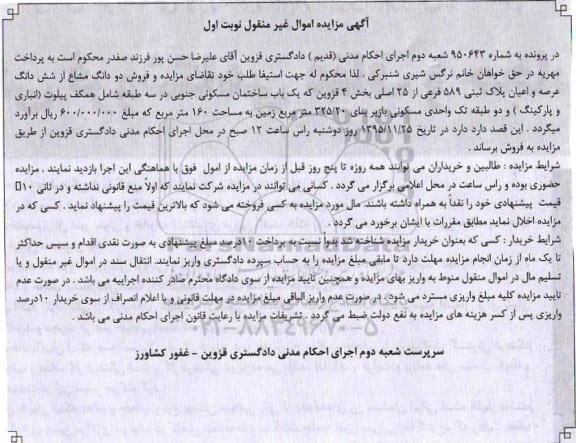 آگهی مزایده اموال غیر منقول نوبت اول
در پرونده به شماره ۹۵۰۶۴۳ شعبه دوم اجرای احکام مدنی (قدیم ) دادگستری قزوین آقای علیرضا حسن پور فرزند صفدر محکوم است به پرداخت
مهریه در حق خواهان خانم نرگس شیری شنبرکی . لذا محکوم له جهت استیفا طلب خود تقاضای مزایده و فروش دو دانگ مشاع از شش دانگ
عرصه و اعیان پلاک ثبتی ۵۸۹ فرعی از ۲۵ اصلی بخش ۴ قزوین که یک باب ساختمان مسکونی جنوبی در سه طبقه شامل همکف پیلوت (انباری
و پارکینگ ) و دو طبقه تک واحدی مسکونی بازیر بنای ۳۲۵/۲۰ متر مربع زمین به مساحت ۱۶۰ متر مربع که مبلغ ۶۰۰/۰۰۰/۰۰۰ ریال برآورد
میگردد . این قصد دارد دارد در تاریخ ۱۳۹۵/۱۱/۲۵ روز دوشنبه راس ساعت ۱۲ صبح در محل اجرای احکام مدنی دادگستری قزوین از طریق
مزایده به فروش برساند .
شرایط مزایده : طالبین و خریداران می توانند همه روزه تا پنج روز قبل از زمان مزایده از امول فوق با هماهنگی این اجرا بازدید نمایند . مزایده
حضوری بوده و راس ساعت در محل اعلامی برگزار می گردد . کسانی می توانند در مزایده شرکت نمایند که اولا منع قانونی نداشته و در ثانی ۱۰
قیمت پیشنهادی خود را نقداً به همراه داشته باشند. مال مورد مزایده به کسی فروخته می شود که بالاترین قیمت را پیشنهاد نماید . کسی که در
مزایده اخلال نماید مطابق مقررات با ایشان برخورد می گردد .
شرایط خریدار : کسی که بعنوان خریدار مزایده شناخته شد بدواً نسبت به پرداخت ۱۰درصد مبلغ پیشنهادی به صورت نقدی اقدام و سپس حداکثر
تا یک ماه از زمان انجام مزایده مهلت دارد تا مابقی مبلغ مزایده را به حساب سپرده دادگستری واریز نمایند. انتقال سند در اموال غیر منقول و یا
تسلیم مال در اموال منقول منوط به واریز بهای مزایده و همچنین تایید مزایده از سوی دادگاه محترم صادر کننده اجراییه می باشد . در صورت عدم
تایید مزایده کلیه مبلغ واریزی مسترد می شود. در صورت عدم واریز الباقی مبلغ مزایده در مهلت قانونی و یا اعلام انصراف از سوی خریدار ۱۰درصد
واریزی پس از کسر هزینه های مزایده به نفع دولت ضبط می گردد . تشریفات مزایده با رعایت قانون اجرای احکام مدنی می باشد .
۰۲۱-۸۸۳۴۹۶۷۰-۵
سرپرست شعبه دوم اجرای احکام مدنی دادگستری قزوین - غفور کشاورز